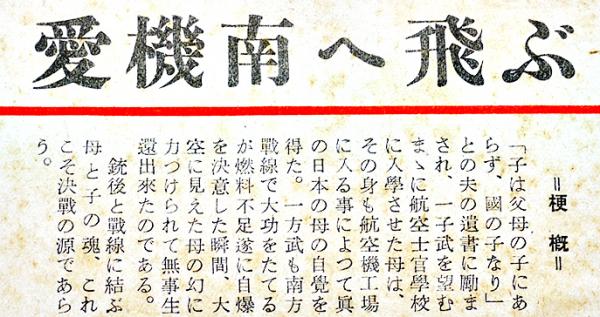 愛機南へ飛ぶ
＝梗概＝
「子は父母の子にあ
らず、國の子なり」
との夫の遺書に勵ま
され、一子武を望む
まゝに航空士官學校
に入學させた母は、
その身も航空機工場
に入る事によつて眞
の日本の母の自覺を
得た。一方武も南方
戰線で大功をたてる
が燃料不足遂に自爆
を決意した瞬間、大
空に見えた母の幻に
力づけられて無事生
還出來たのである。
銃後と戰線に結ぶ
母と子の魂、これ
こそ決戰の源であら
う。